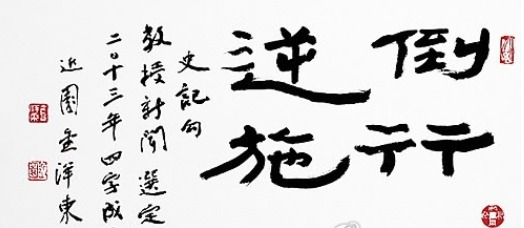 倒行
逆施
史記句
教授新聞 選定
二〇十三年 四字成
近園金洋東